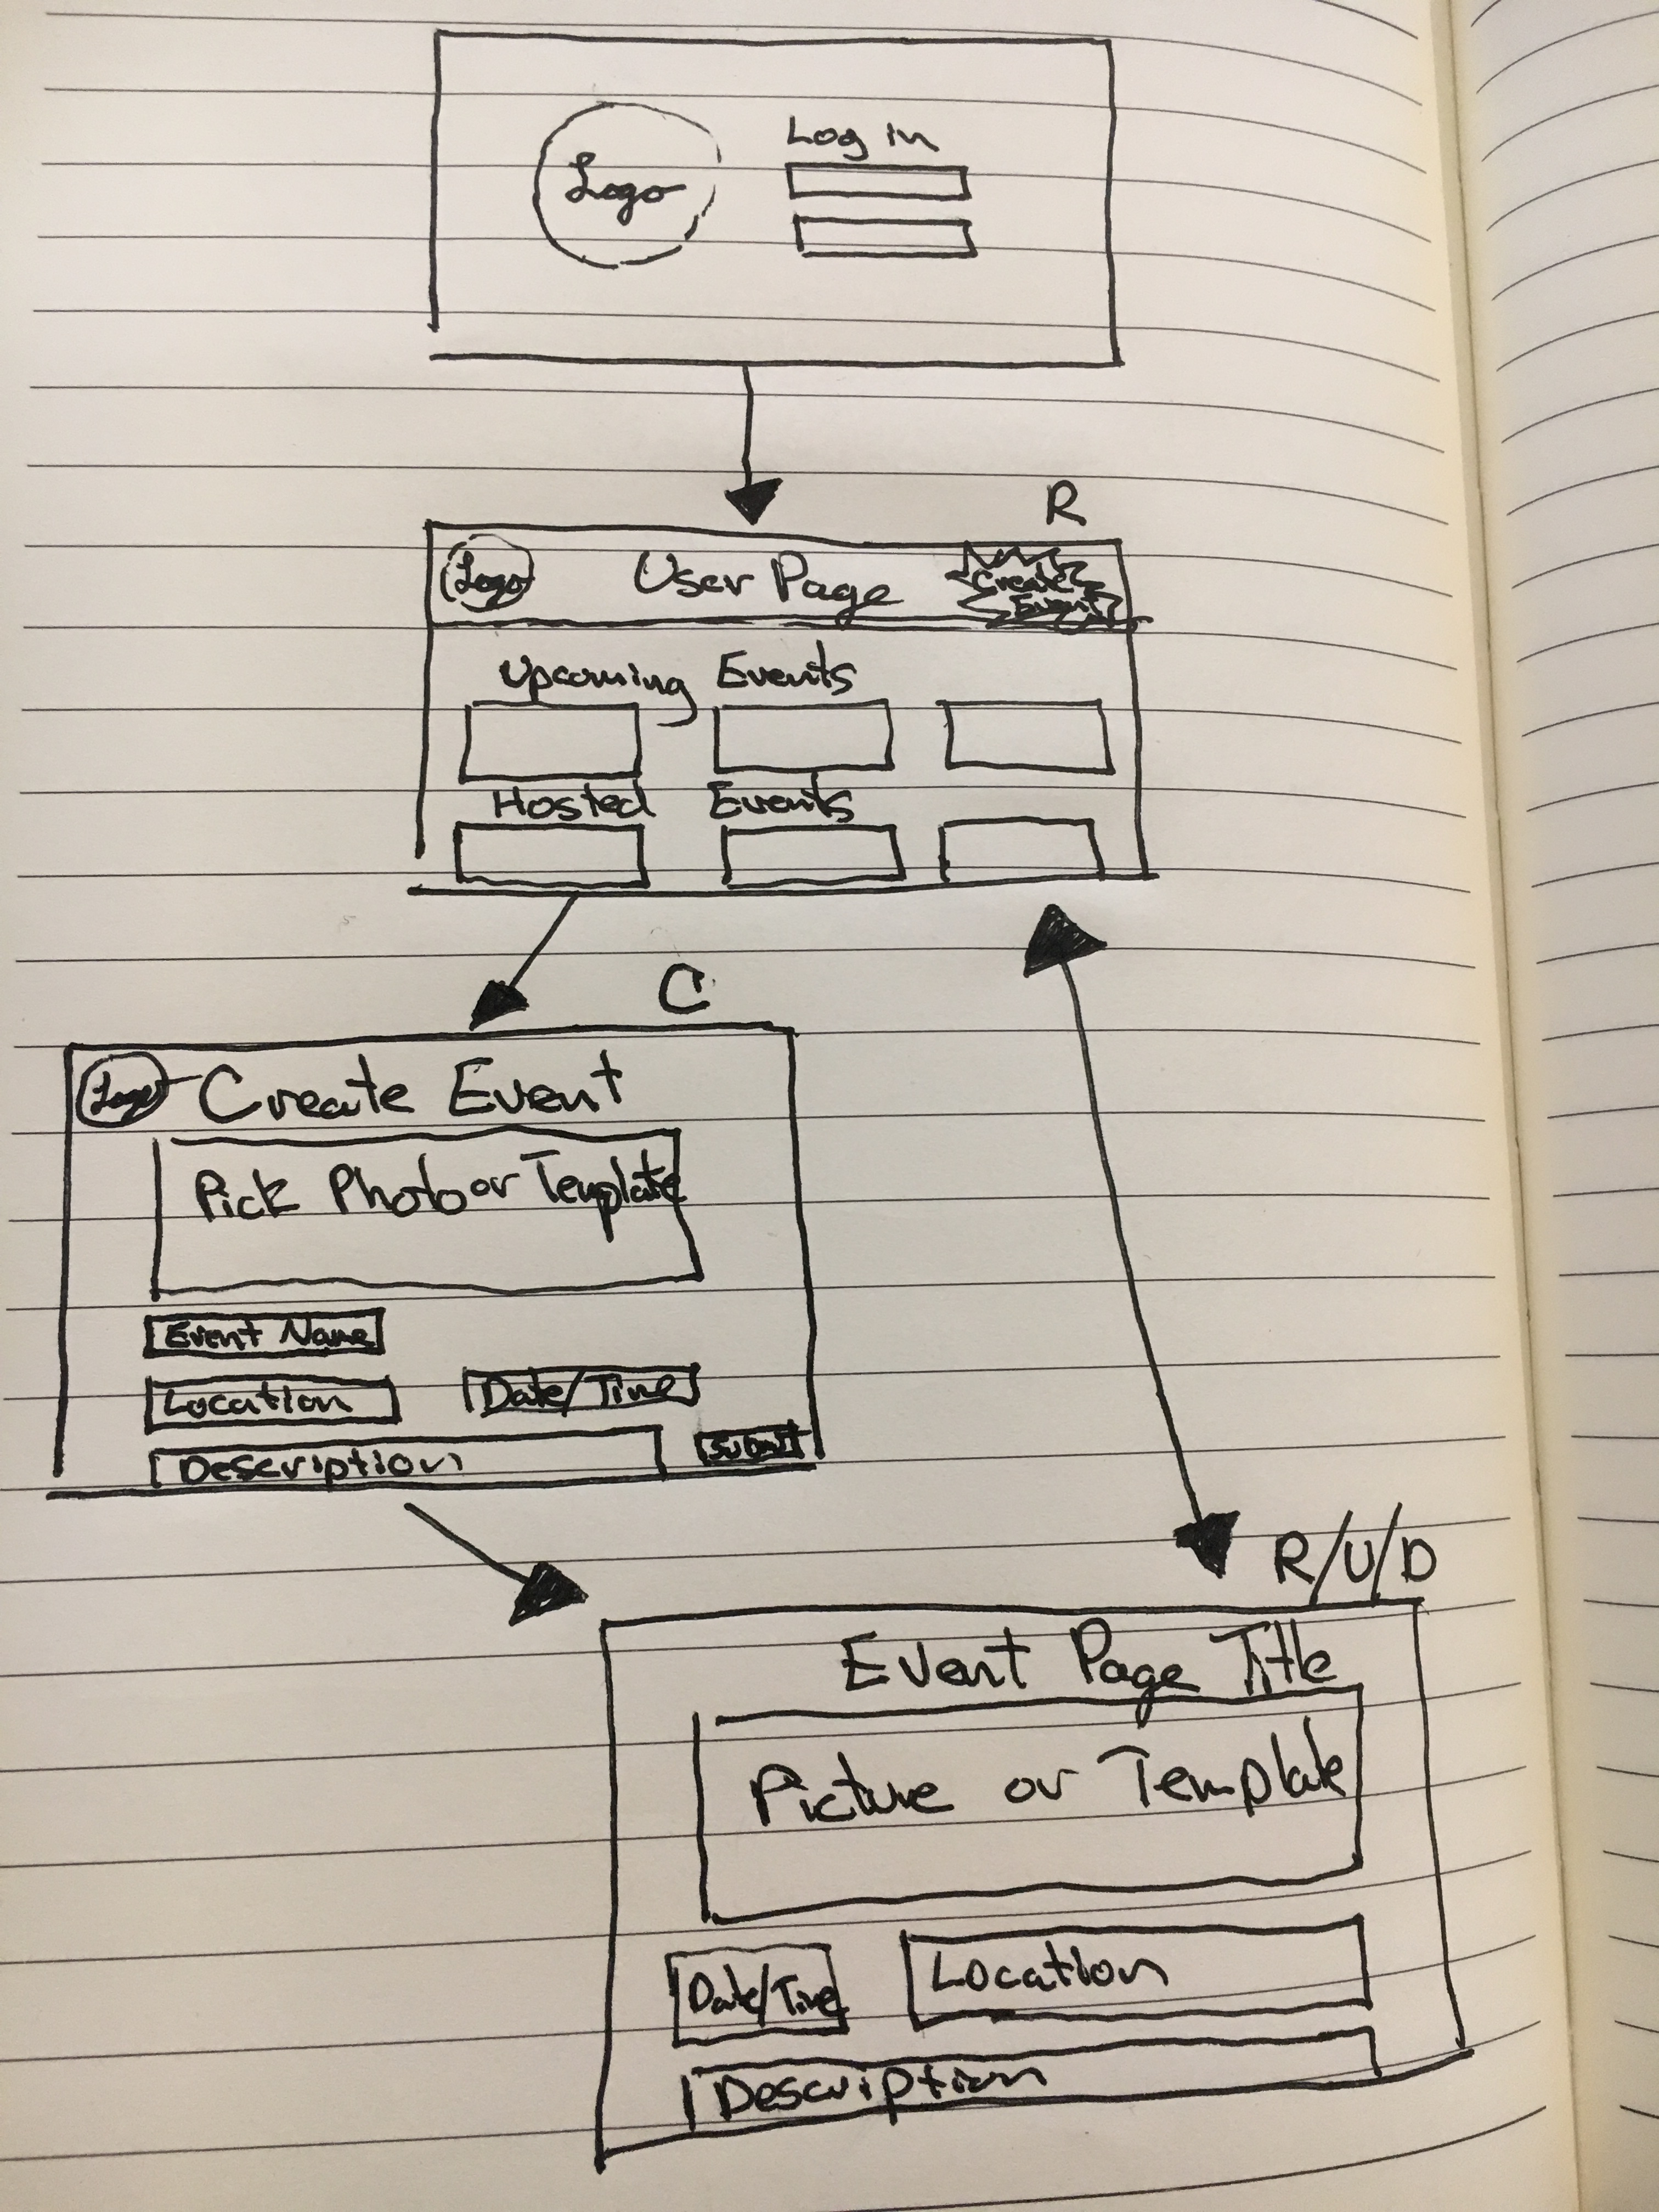 Logo
Log in
R
Logo
User Page
Create
Event
Upcoming Events
Hosted Events
C
Logo
Create Event
Pick Photo or Template
Event Name
Location
Date/Time
Description
Submit
R/U/D
Event Page Title
Picture or Template
Date/Time
Location
Description